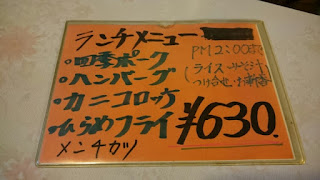 ランチメニュー
PM2:00まで
・四季ポーク
・ハンバーグ
・カニコロッケ
・ひらめフライ
メンチカツ
(ライス みそ汁
つけ合せ・お新香)
¥630.